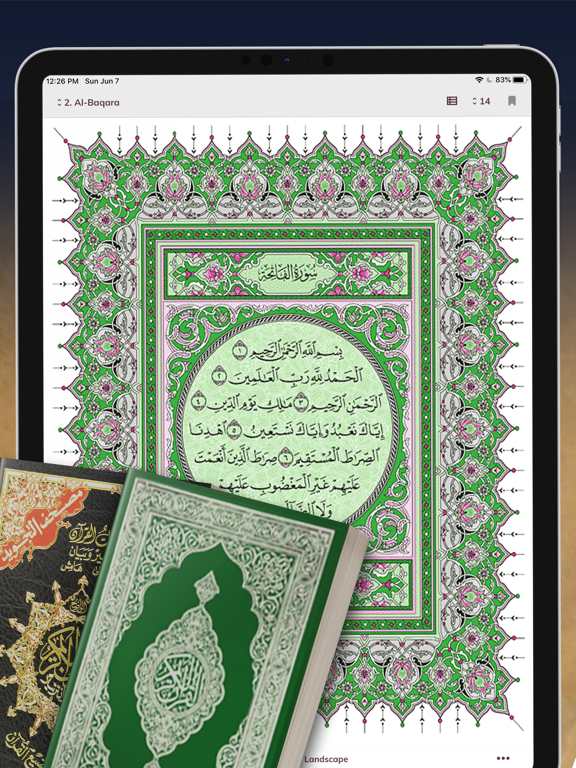 12:26 PM Sun Jun 7
83%
2. Al-Baqara
14
سُورَةُ الفَاتِحَةِ
بِسْمِ اللَّهِ الرَّحْمَٰنِ الرَّحِيمِ ١
الْحَمْدُ لِلَّهِ رَبِّ الْعَالَمِينَ ٢
الرَّحْمَٰنِ الرَّحِيمِ ٣ مَالِكِ يَوْمِ الدِّينِ ٤
إِيَّاكَ نَعْبُدُ وَإِيَّاكَ نَسْتَعِينُ ٥ اهْدِنَا
الصِّرَاطَ الْمُسْتَقِيمَ ٦ صِرَاطَ الَّذِينَ أَنْعَمْتَ
عَلَيْهِمْ غَيْرِ الْمَغْضُوبِ عَلَيْهِمْ
وَلَا
مصحف التجويد
القرآن
وبيان
هامش
القرآن الكريم
Landscape